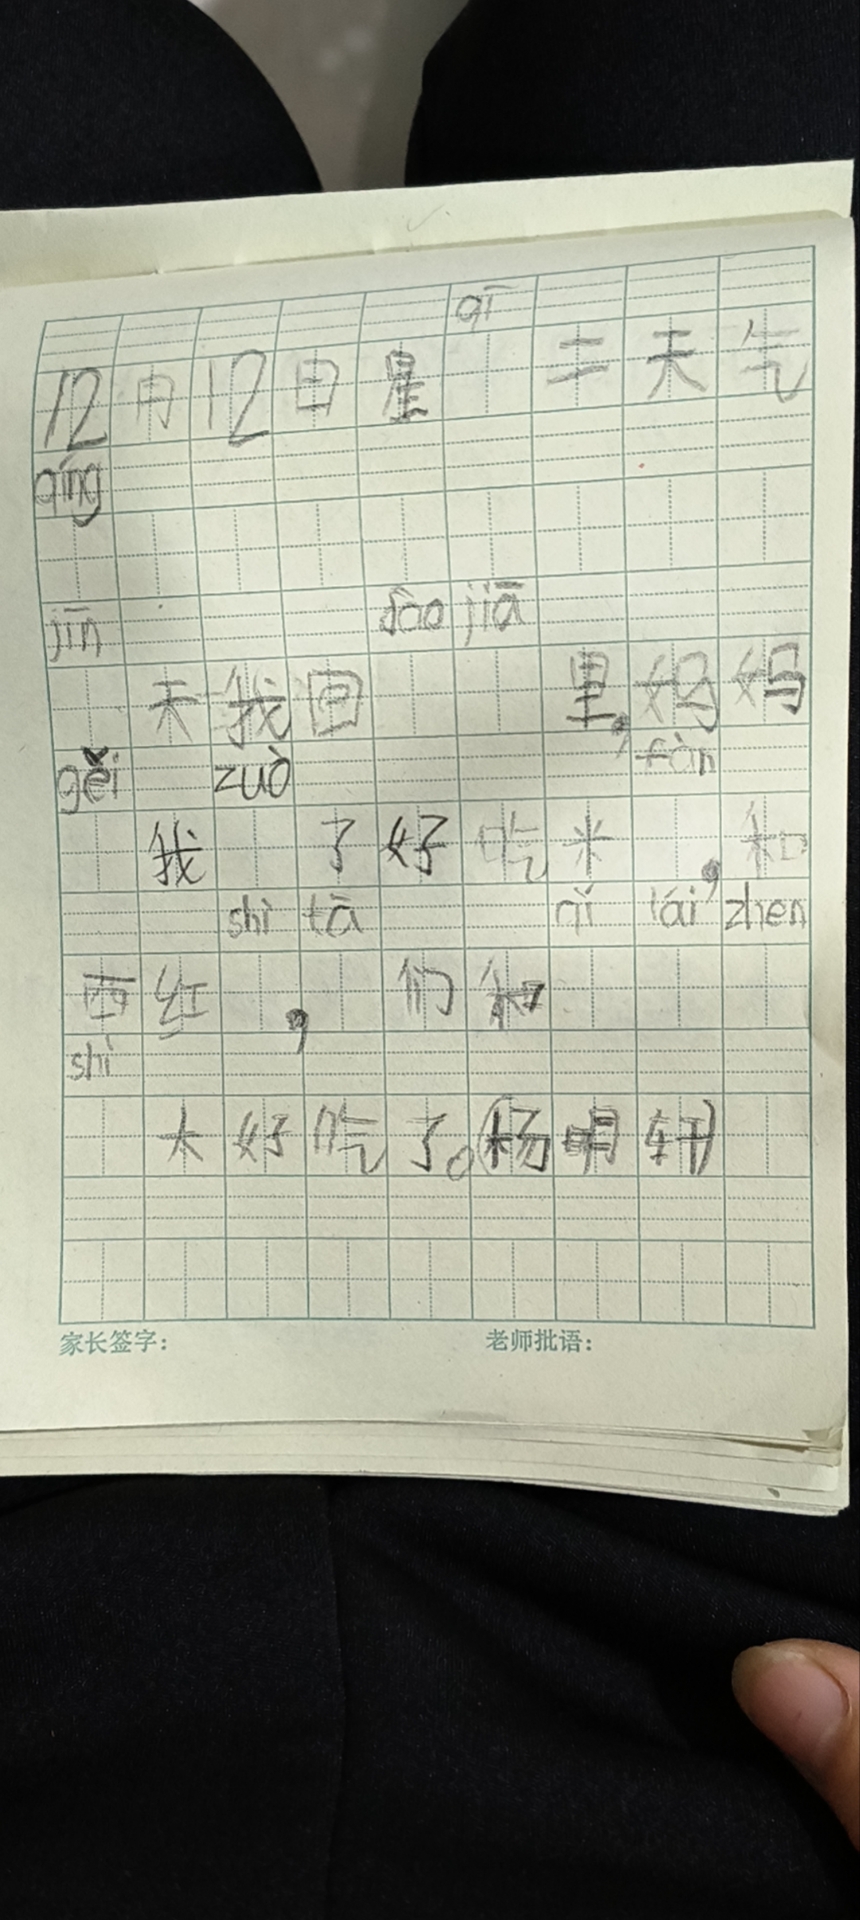 qī
12月12日星二天气
qíng
jīn dào jiā
天我回里,妈妈
gěi zuò fàn
我了好吃米,和
shì tā qǐ lái zhen
西红,们和
shì
太好吃了。(杨明轩)
家长签字: 老师批语: